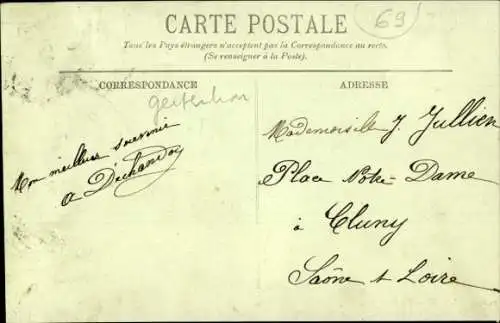 CARTE POSTALE
69
Tous les Pays étrangers n'acceptent pas la Correspondance au recto.
(Se renseigner à la Poste).
CORRESPONDANCE
ADRESSE
Mon meilleur souvenir
Mademoiselle J. Jullien
Place Notre-Dame
à
Cluny
Saône & Loire